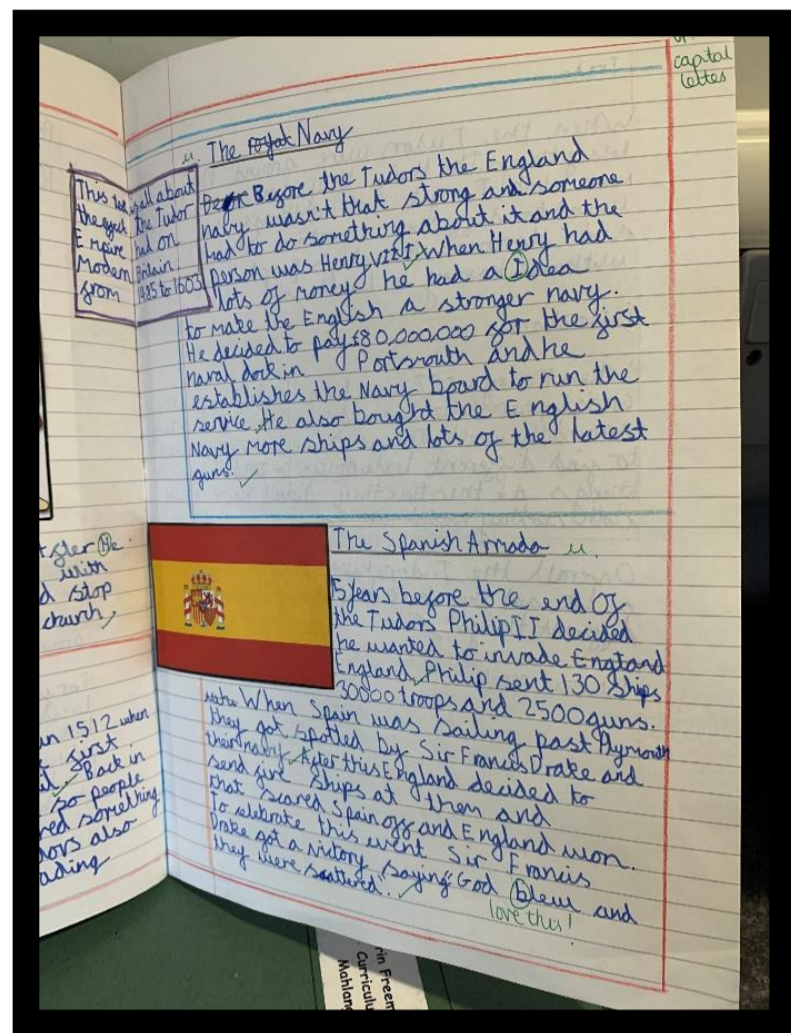 capital
lettes
The royal Navy
This text is all about
the effect the Tudor
Empire had on
Modern Britain
from 1485 to 1603
Before the Tudors the England
navy wasn't that strong and someone
had to do something about it and the
person was Henry VIII, When Henry had
lots of money he had a Idea
to make the English a stronger navy.
He decided to pay £80,000,000 for the first
naval dock in Portsmouth and he
establishes the Navy board to run the
service, He also bought the English
Navy more ships and lots of the latest
guns.
The Spanish Armada
15 years before the end of
the Tudors Philip II decided
he wanted to invade England
England, Philip sent 130 ships
30000 troops and 2500 guns.
When Spain was sailing past Plymouth
they got spotted by Sir Francis Drake and
their navy, After this England decided to
send fire ships at them and
that scared Spain off and England won.
To celebrate this event Sir Francis
Drake got a victory saying "God blew and
they were scattered".
love this!
after He
with
d stop
church
in 1512 when
first
Back in
so people
red something
dors also
ading
rin Freem
Curriculu
Mahlan